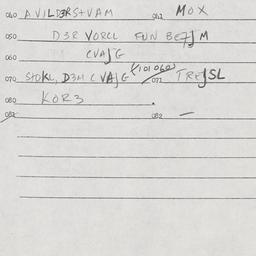 040 AVILDERSTVAM 042 MOX
050 D3R VORCL FUN BE7JM
060 CVAJG
070 STOKL, D3M CVAJG (101 060) 072 TREJSL
080 KOR3
082 082 —